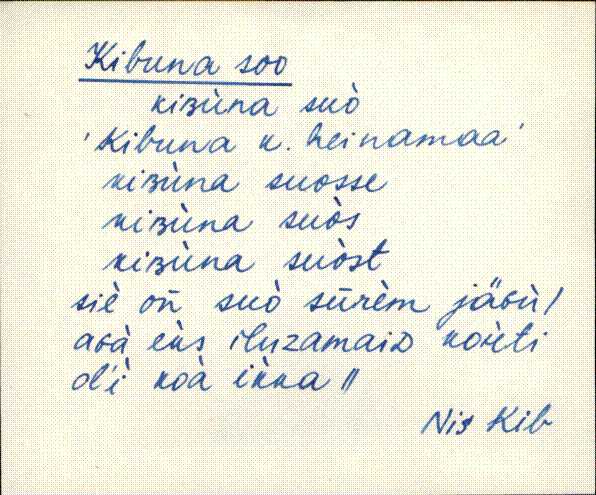 Kibuna soo
kiʙùna suò
'Kibuna k. heinamaa'
kiʙùna suosse
kiʙùna suòs
kiʙùna suòst
siè oñ suò sūrèm jäɢù/
aɢà eks iluzamaiᴅ koɦ̀ti
ol'i koà ikka //
Nis Kib